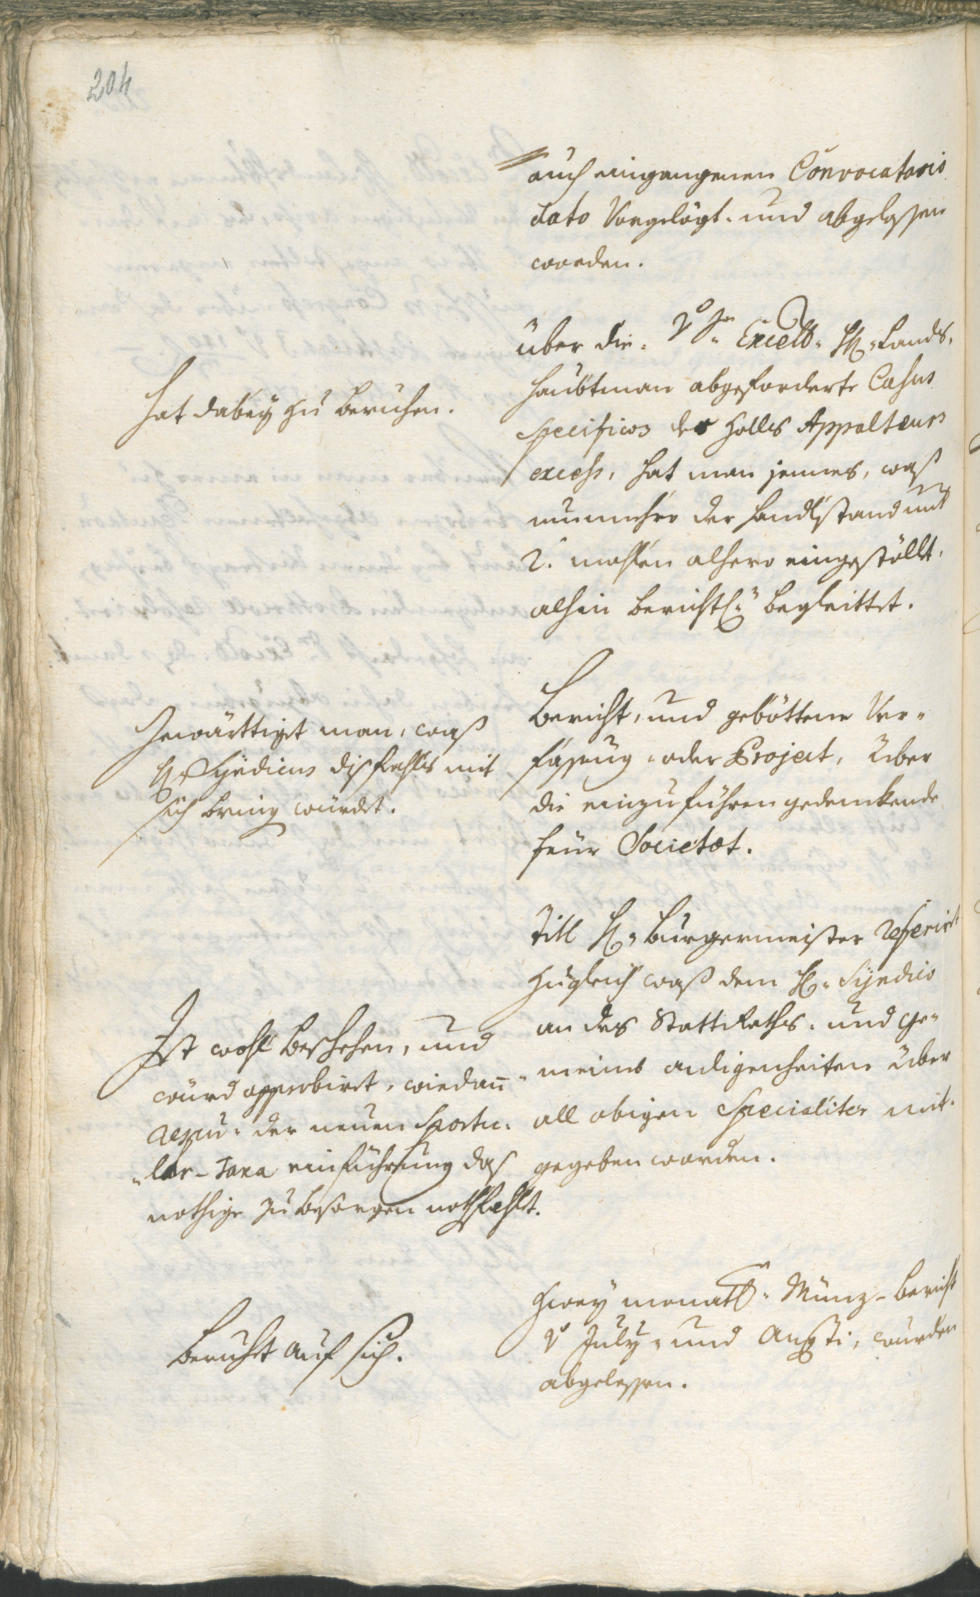 204
auch eingangenen Convocatoris
dato Vorgelögt- und abgelessen
worden.
Hat dabey zu beruhen.
über die von Sr. Excell. H. Lands-
haubtman abgeforderte Casus
Specificos des Zolls Appalteurs
excess, hat man jennes, waß
nunmehro der Handlstand mit
2. mahlen alhero eingestöllt,
alhin berichtl. begleittet.
Gewärttiget man, waß
H. Syndicus disfahls mit
sich bring würdet.
Bericht, und gebottene Ver-
fassung- oder Project, über
die einzuführen gedenckende
feür Societæt.
Ist wohl beschehen, und
würd approbiret, wie dan
der neuen Sportu-
lar-Taxa einführung das
nothige zu besorgen nothfahlt.
Titl H. Burgermeister referirt
zugleich waß dem H. Syndico
an des Statt Raths- und ge-
meines anligenheiten über
all obigen Specialiter mit-
gegeben worden.
Beruhet auf sich.
Zwey monattl. Münz-bericht
July- und Augsti, wurden
abgelessen.